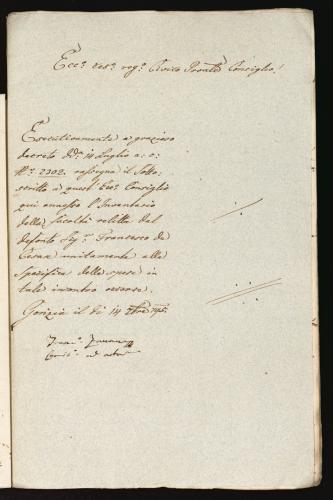 Ecc.º Ces.º reg.º Civico Prov.le Consiglio!
Esecutivamente a grazioso
decreto dd.º 14 Luglio a: c:
N.º 2302. rassegna il Sotto:
scritto a quest'Ecc.º Consiglio
qui annesso l'Inventario
della facoltà relitta dal
defonto Sig.r Francesco de
unitamente alla
Specifica delle spese in
tale incontro occorse.
Gorizia il di 14